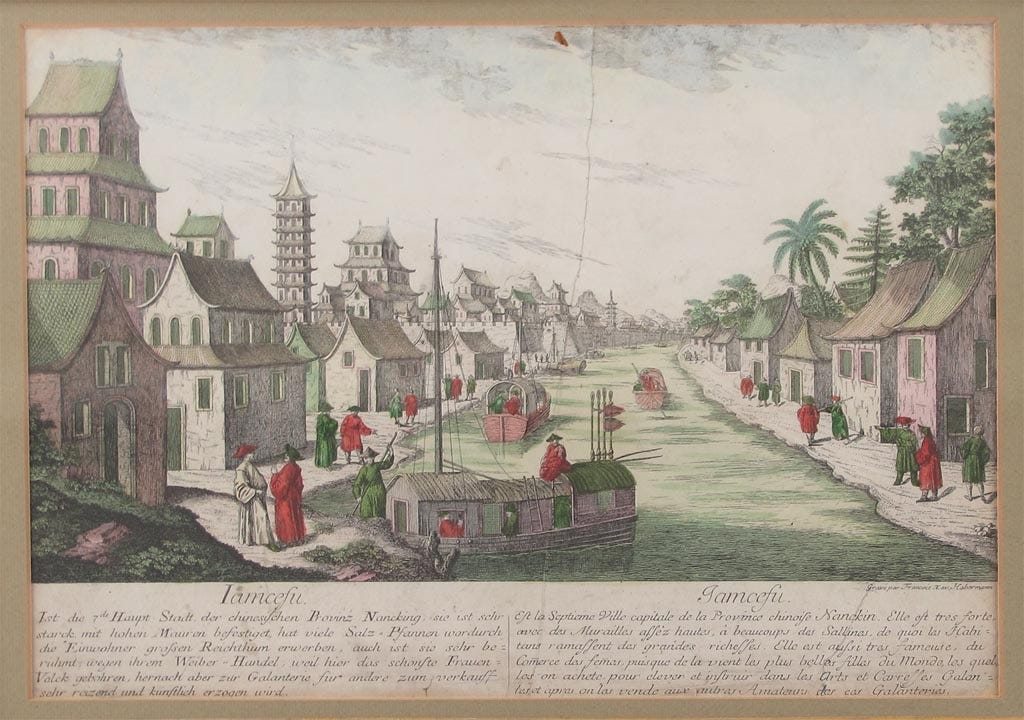 Iamcefu.
Ist die 7de Haupt Stadt der chinesischen Provinz Nancking, sie ist sehr
starck mit hohen Mauren befestiget, hat viele Salz-Pfannen wordurch
die Einwohner grossen Reichthum erwerben, auch ist sie sehr be-
rühmt, wegen ihrem Weiber-Handel, weil hier das schönste Frauen-
Volck gebohren, hernach aber zur Galanterie für andere zum verkauff
sehr reizend und künstlich erzogen wird.
Gravé par François Xav. Habermann
Jamcefu.
Est la Septieme Ville capitale de la Province chinoise Nanckin. Elle est tres forte
avec des Murailles assés hautes, à beaucoups des Sallines, de quoi les Habi-
tans ramassent des grandes richesses. Elle est aussi tres fameuse, du
Comerce des femes, puisque de la vient les plus belles filles du Monde, les quel
les on achete, pour elever et instruir dans les Arts et Carresses Galan-
tes, et apres on les vende aux autres Amateurs des ces Galanteries.